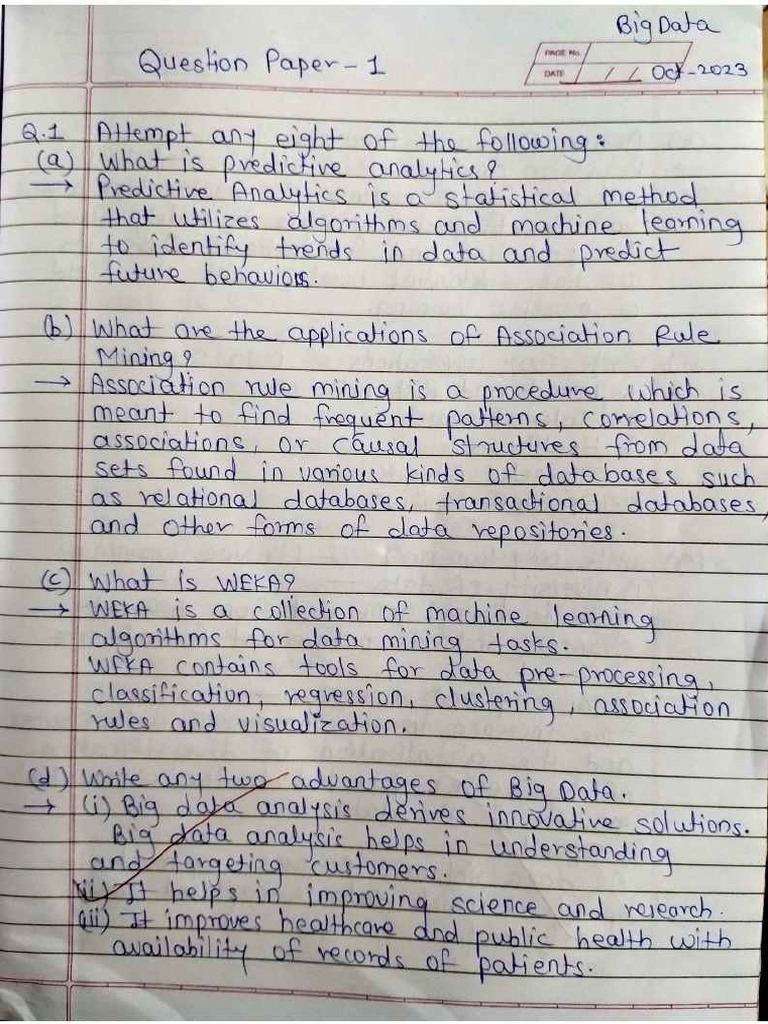 Big Data
Question Paper - 1
PAGE No.
DATE / / Oct-2023
Q.1 Attempt any eight of the following:
(a) What is predictive analytics?
→ Predictive Analytics is a statistical method
that utilizes algorithms and machine learning
to identify trends in data and predict
future behaviors.
(b) What are the applications of Association Rule
Mining?
→ Association rule mining is a procedure which is
meant to find frequent patterns, correlations,
associations, or causal structures from data
sets found in various kinds of databases such
as relational databases, transactional databases,
and other forms of data repositories.
(c) What is WEKA?
→ WEKA is a collection of machine learning
algorithms for data mining tasks.
WEKA contains tools for data pre-processing,
classification, regression, clustering, association
rules and visualization.
(d) Write any two advantages of Big Data.
→ (i) Big data analysis derives innovative solutions.
Big data analysis helps in understanding
and targeting customers.
(ii) It helps in improving science and research.
(iii) It improves healthcare and public health with
availability of records of patients.